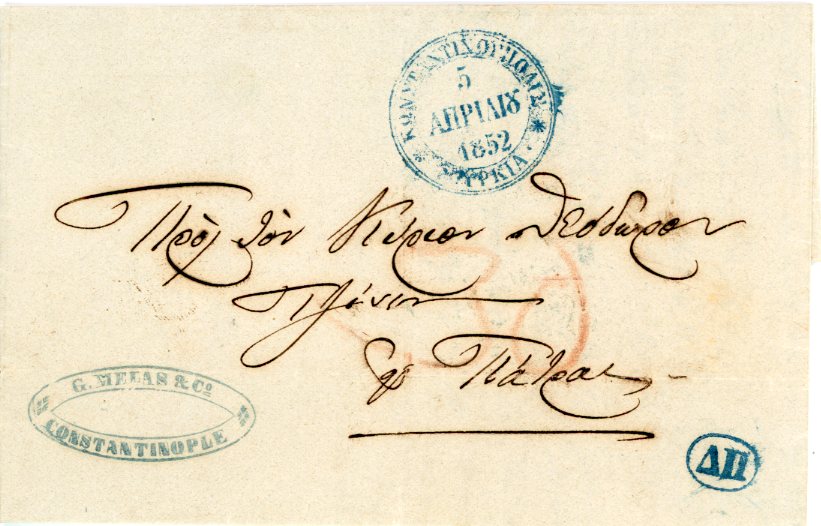 ΚΩΝΣΤΑΝΤΙΝΟΥΠΟΛΙΣ
5
ΑΠΡΙΛΙΟΥ
1852
ΤΟΥΡΚΙΑ
Πρὸς τὸν Κύριον Θεόδωρον
Εἰς Πάτρας
G. MELAS & Co
CONSTANTINOPLE
ΔΠ